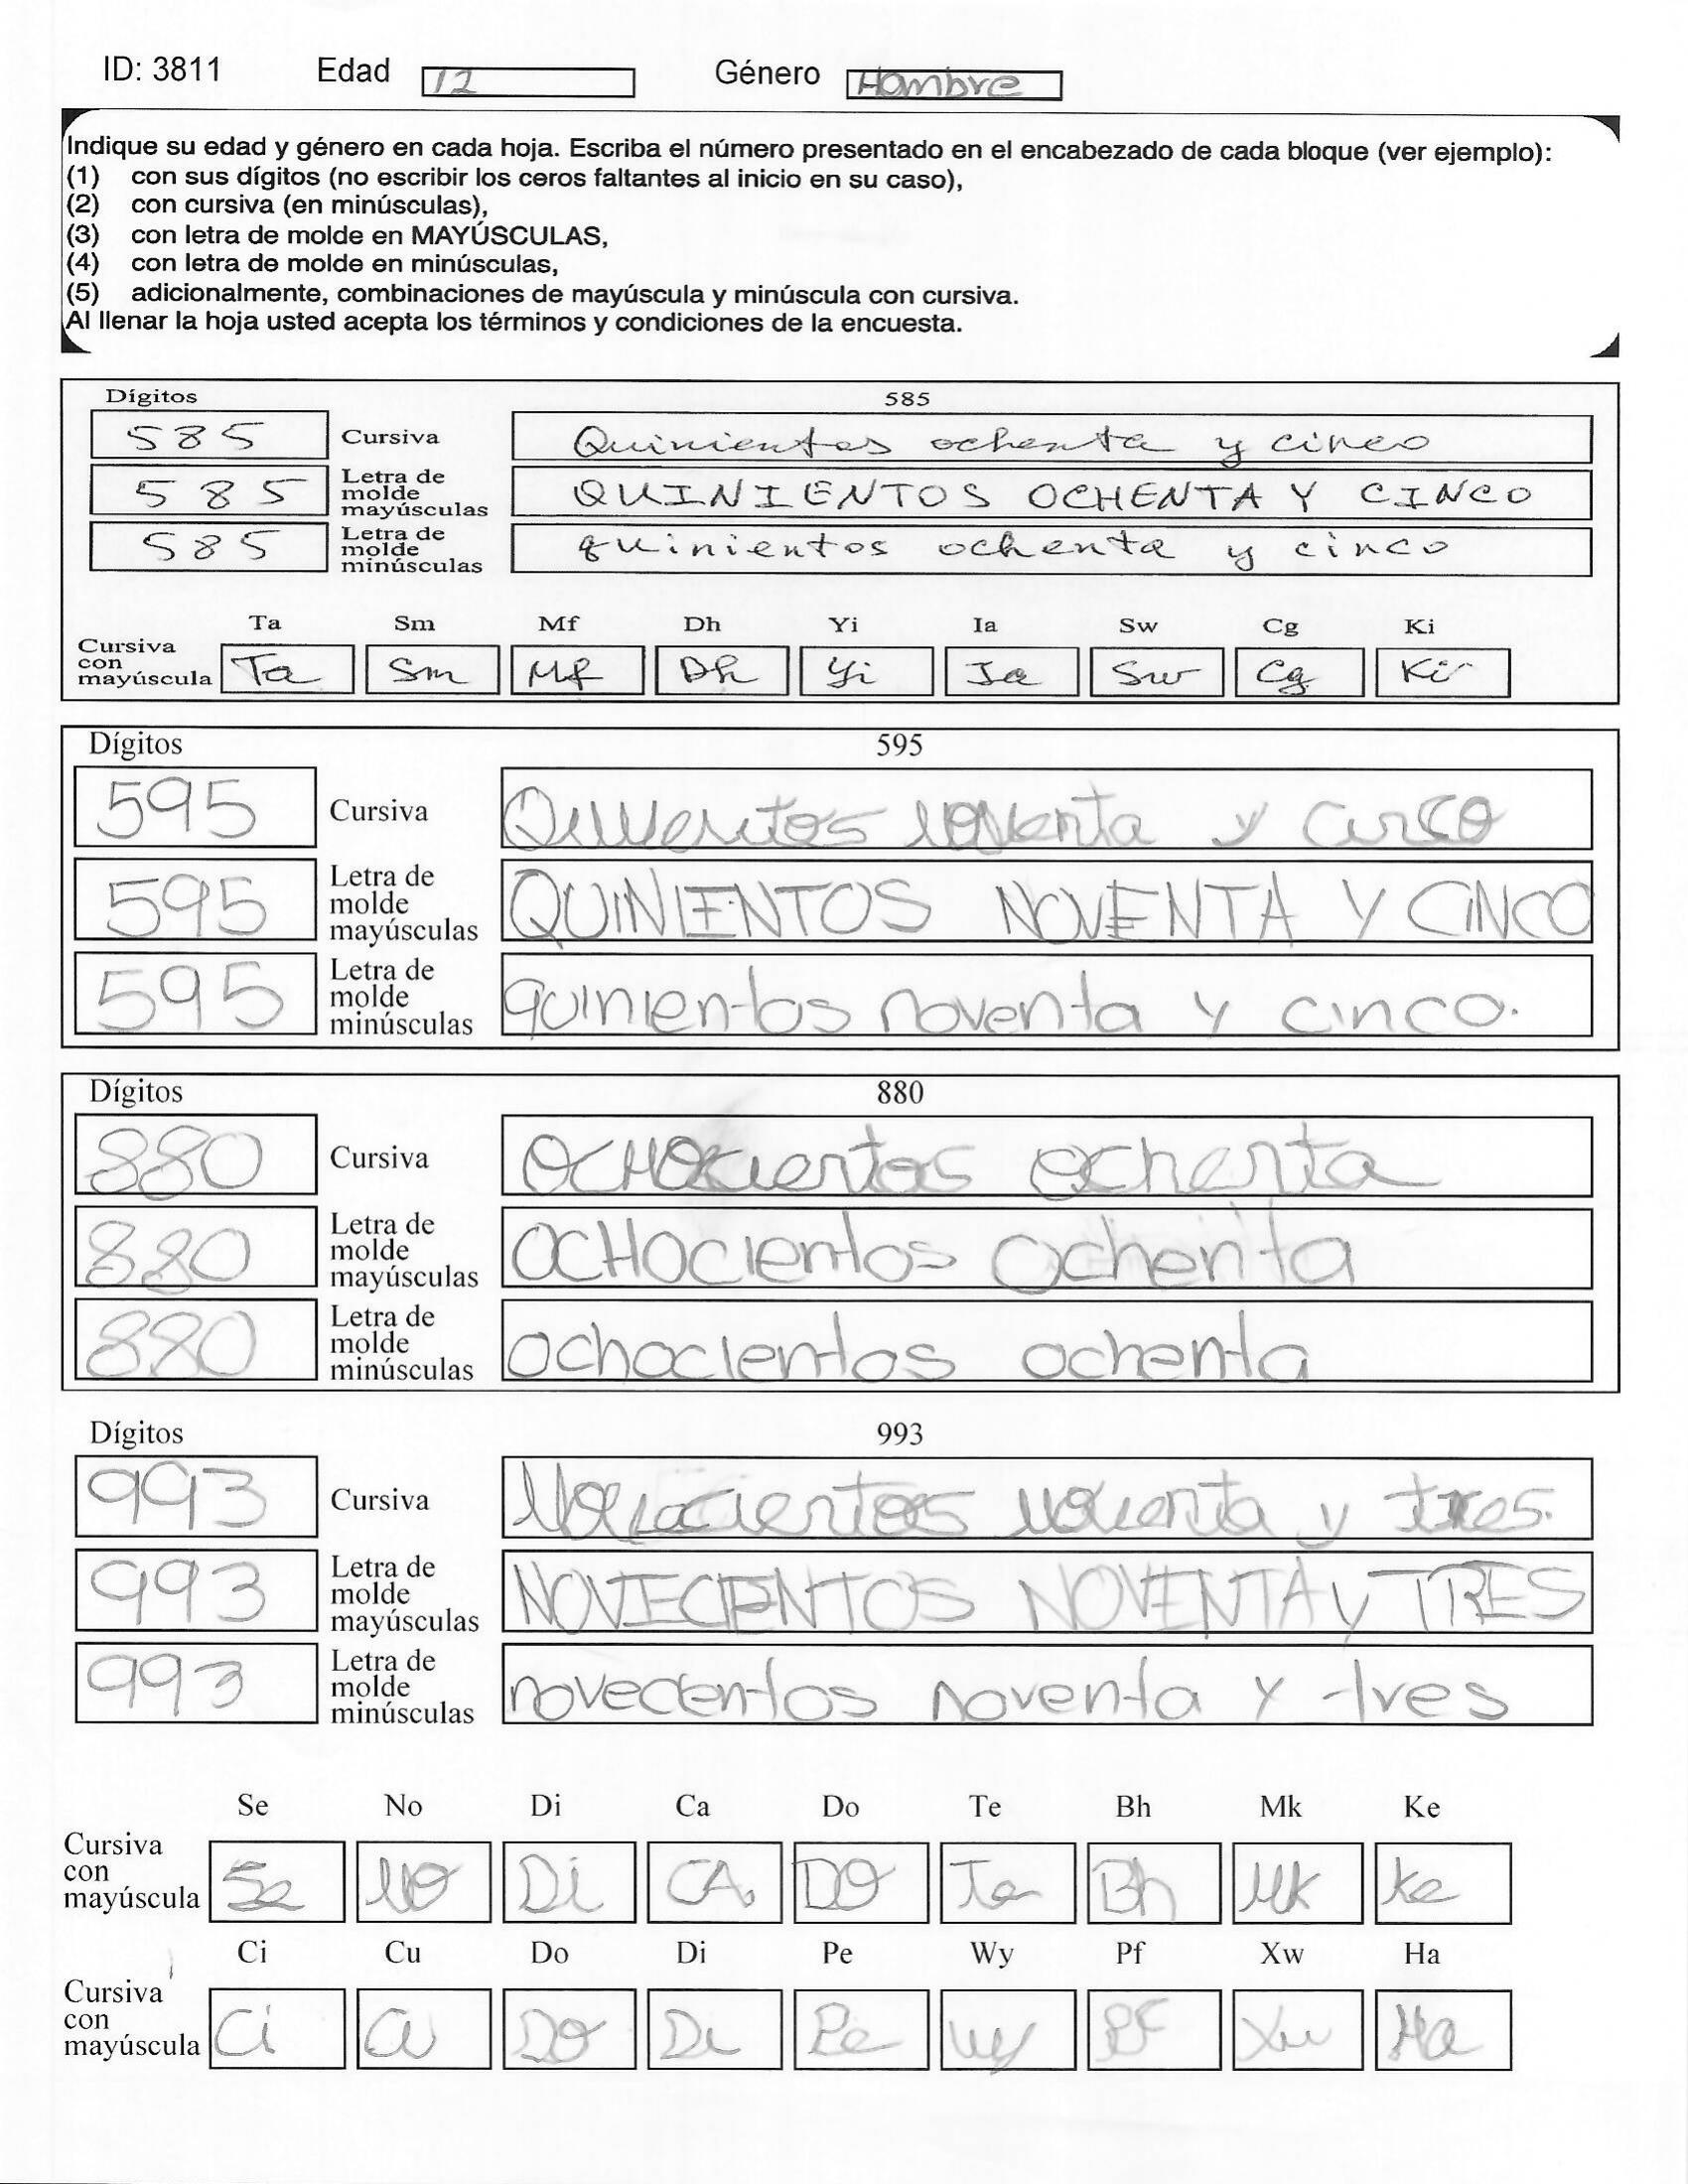 ID: 3811 Edad 12 Género Hombre
Indique su edad y género en cada hoja. Escriba el número presentado en el encabezado de cada bloque (ver ejemplo):
(1) con sus dígitos (no escribir los ceros faltantes al inicio en su caso),
(2) con cursiva (en minúsculas),
(3) con letra de molde en MAYÚSCULAS,
(4) con letra de molde en minúsculas,
(5) adicionalmente, combinaciones de mayúscula y minúscula con cursiva.
Al llenar la hoja usted acepta los términos y condiciones de la encuesta.
Dígitos 585
585 Cursiva Quinientos ochenta y cinco
585 Letra de molde mayúsculas QUINIENTOS OCHENTA Y CINCO
585 Letra de molde minúsculas quinientos ochenta y cinco
Ta Sm Mf Dh Yi Ia Sw Cg Ki
Cursiva con mayúscula Ta Sm Mf Dh Yi Ia Sw Cg Ki
Dígitos 595
595 Cursiva Quinientos noventa y cinco
595 Letra de molde mayúsculas QUINIENTOS NOVENTA Y CINCO
595 Letra de molde minúsculas quinientos noventa y cinco.
Dígitos 880
880 Cursiva OCHOcientos ochenta
880 Letra de molde mayúsculas OCHOcientos ochenta
880 Letra de molde minúsculas ochocientos ochenta
Dígitos 993
993 Cursiva noventa y tres.
993 Letra de molde mayúsculas NOVIECIENTOS NOVENTA y TRES
993 Letra de molde minúsculas novecientos noventa y tres
Se No Di Ca Do Te Bh Mk Ke
Cursiva con mayúscula Se NO Di CA. DO Te Bh Mk Ke
Ci Cu Do Di Pe Wy Pf Xw Ha
Cursiva con mayúscula Ci Cu DO Di Pe Wy PF Xw Ha